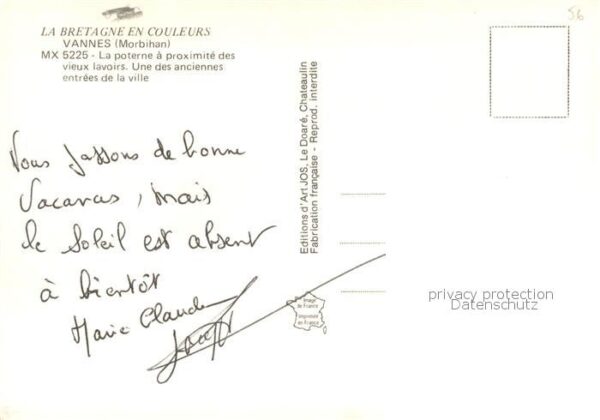 56
LA BRETAGNE EN COULEURS
VANNES (Morbihan)
MX 5225 - La poterne à proximité des
vieux lavoirs. Une des anciennes
entrées de la ville
Nous passons de bonne
Vacances, mais
le Soleil est absent
à bientôt
Marie Claude
Editions d'Art JOS, Le Doaré, Chateaulin
Fabrication française - Reprod. interdite
Image
de France
Imprimée
en France
privacy protection
Datenschutz